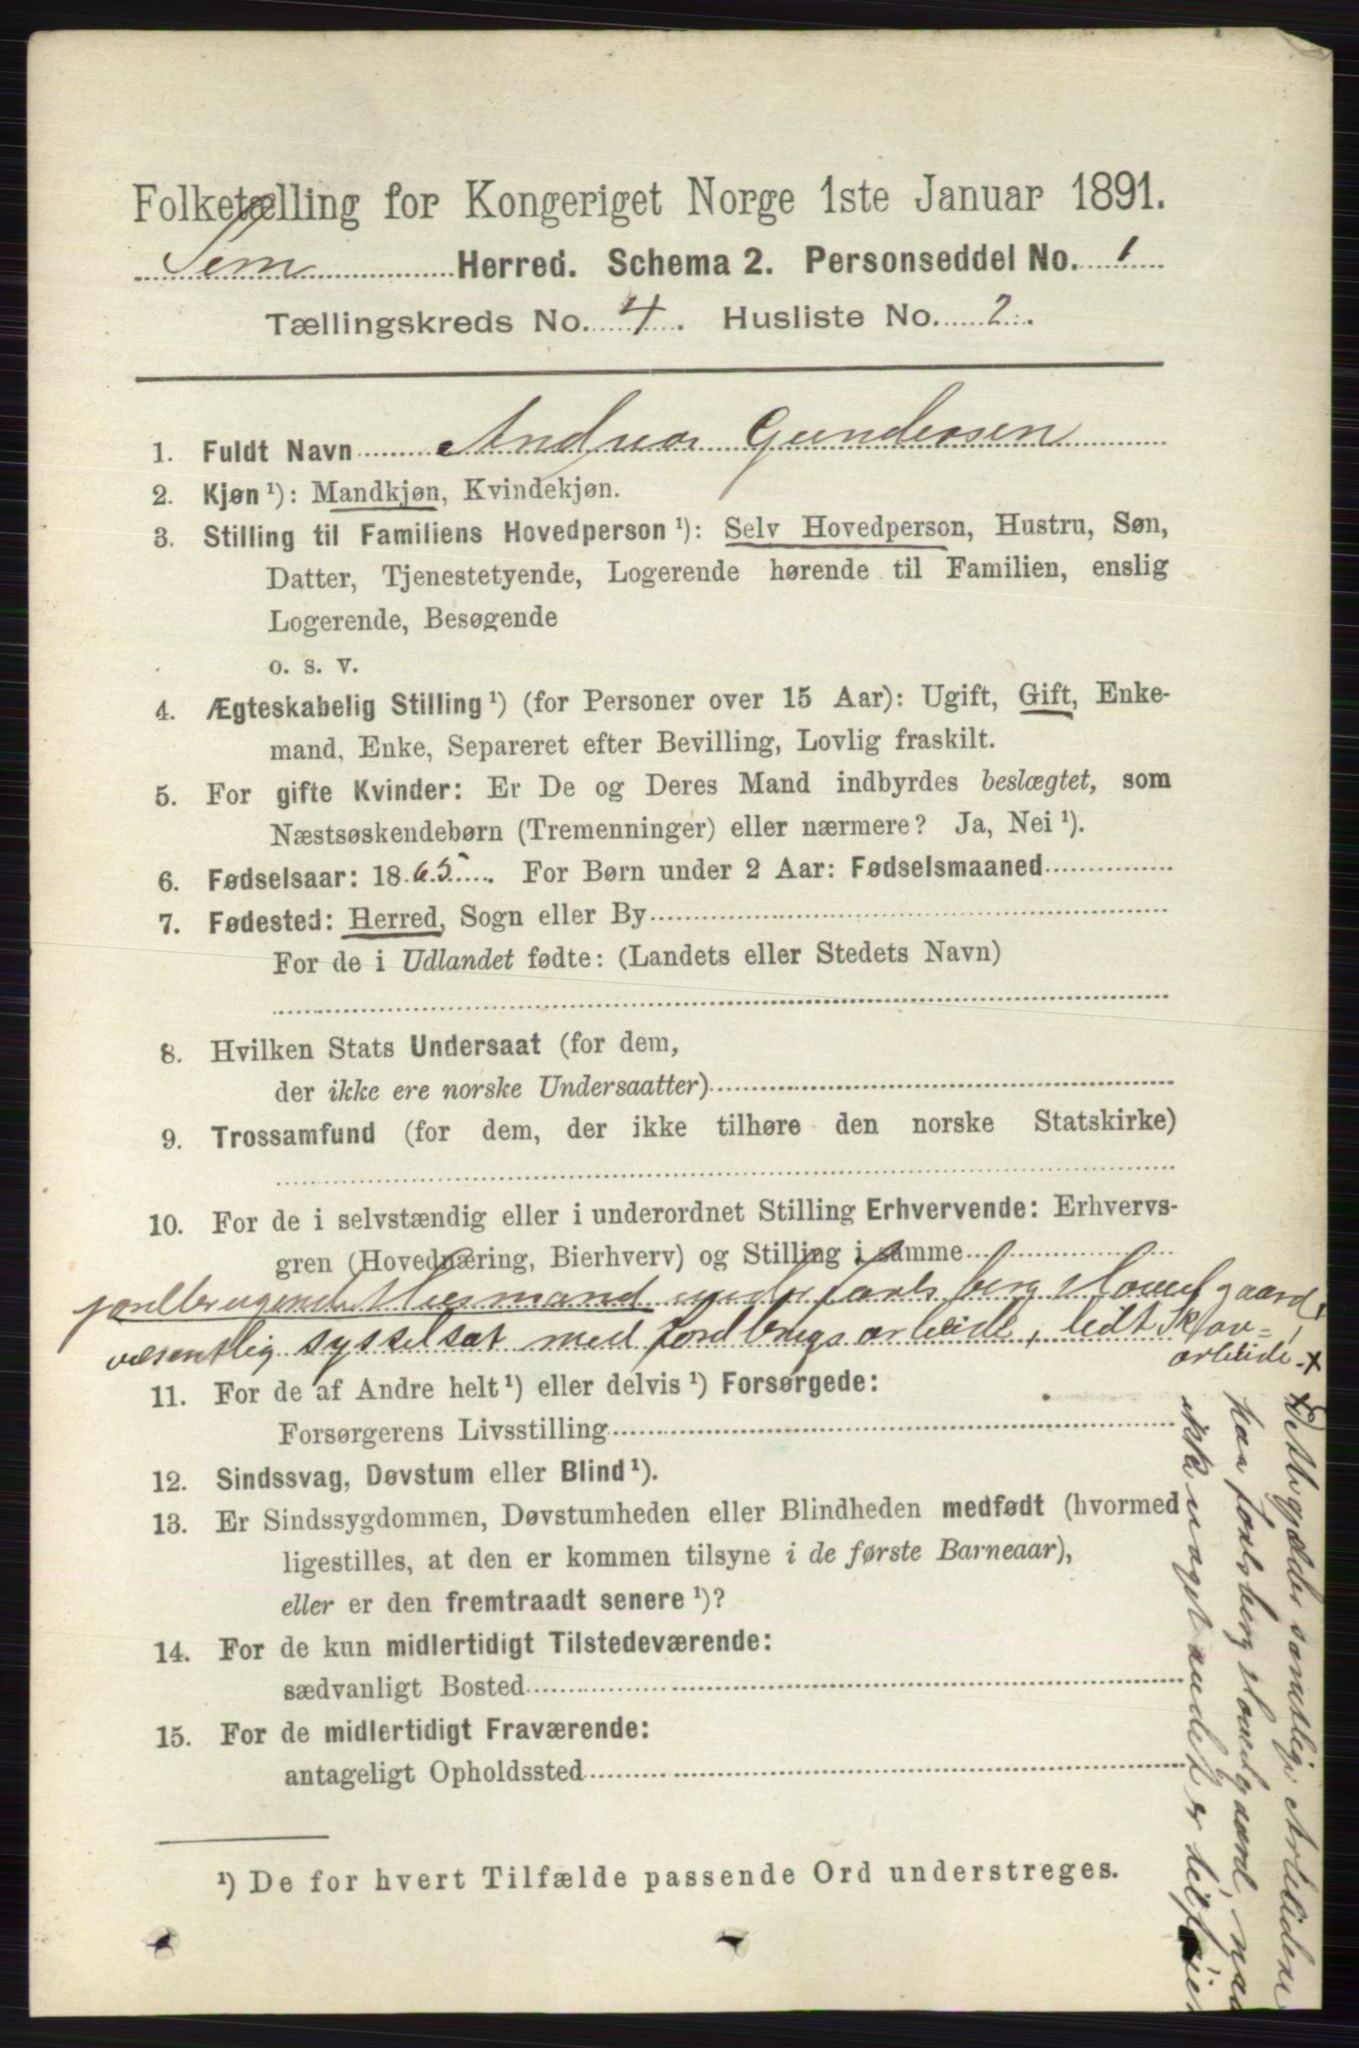 Folketælling for Kongeriget Norge 1ste Januar 1891.
Sem Herred. Schema 2. Personseddel No. 1
Tællingskreds No. 4. Husliste No. 2.
1. Fuldt Navn Andreas Gundersen
2. Kjøn ¹): Mandkjøn, Kvindekjøn.
3. Stilling til Familiens Hovedperson ¹): Selv Hovedperson, Hustru, Søn,
Datter, Tjenestetyende, Logerende hørende til Familien, enslig
Logerende, Besøgende
o. s. v.
4. Ægteskabelig Stilling ¹) (for Personer over 15 Aar): Ugift, Gift, Enke-
mand, Enke, Separeret efter Bevilling, Lovlig fraskilt.
5. For gifte Kvinder: Er De og Deres Mand indbyrdes beslægtet, som
Næstsøskendebørn (Tremenninger) eller nærmere? Ja, Nei ¹).
6. Fødselsaar: 1865. For Børn under 2 Aar: Fødselsmaaned
7. Fødested: Herred, Sogn eller By
For de i Udlandet fødte: (Landets eller Stedets Navn)
8. Hvilken Stats Undersaat (for dem,
der ikke ere norske Undersaatter)
9. Trossamfund (for dem, der ikke tilhøre den norske Statskirke)
10. For de i selvstændig eller i underordnet Stilling Erhvervende: Erhvervs-
gren (Hovednæring, Bierhverv) og Stilling i samme
jordbrugende Husmand under Jarlsberg Hovedgaard,
væsentlig sysselsat med jordbrugsarbeide, lidt Skov-
arbeide. ×
11. For de af Andre helt ¹) eller delvis ¹) Forsørgede:
Forsørgerens Livsstilling
12. Sindssvag, Døvstum eller Blind ¹).
13. Er Sindssygdommen, Døvstumheden eller Blindheden medfødt (hvormed
ligestilles, at den er kommen tilsyne i de første Barneaar),
eller er den fremtraadt senere ¹)?
14. For de kun midlertidigt Tilstedeværende:
sædvanligt Bosted
15. For de midlertidigt Fraværende:
antageligt Opholdssted
¹) De for hvert Tilfælde passende Ord understreges.
× Dette gjælder samtlige Arbeidere
paa Jarlsberg Hovedgaard, naar
ikke noget andet er tilføiet